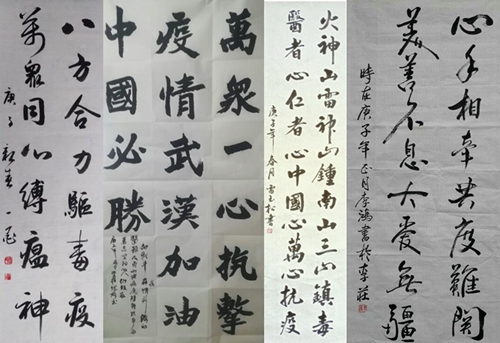 八方合力驅毒疫
萬眾同心縛瘟神
庚子新春一
萬眾一心抗擊
疫情武漢加油
中國必勝
火神山雷神山鍾南山三山鎮毒
醫者心仁者心中國心萬心抗疫
庚子年春月雷玉松書
心手相牽共度難關
美善不息大愛無疆
時在庚子年正月李鴻書於李莊